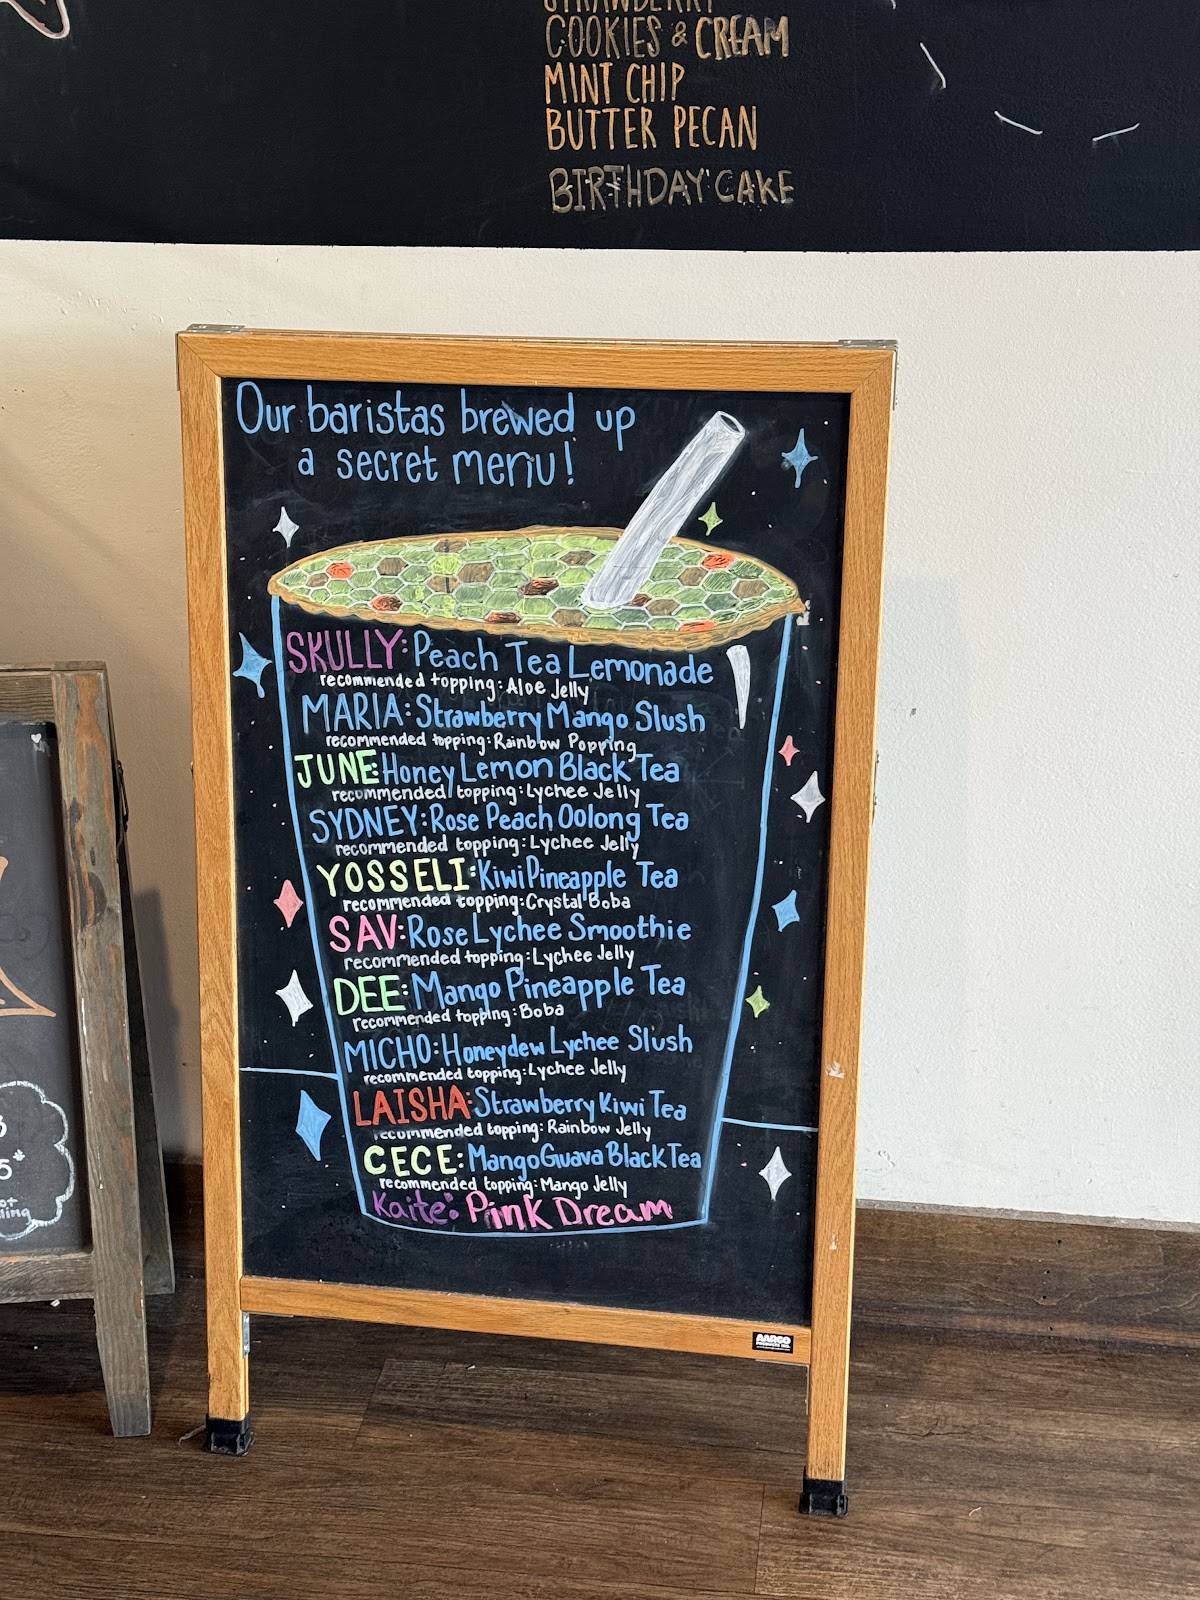 STRAWBERRY
COOKIES & CREAM
MINT CHIP
BUTTER PECAN
BIRTHDAY CAKE
Our baristas brewed up
a secret menu!
SKULLY: Peach Tea Lemonade
recommended topping: Aloe Jelly
MARIA: Strawberry Mango Slush
recommended topping: Rainbow Popping
JUNE: Honey Lemon Black Tea
recommended topping: Lychee Jelly
SYDNEY: Rose Peach Oolong Tea
recommended topping: Lychee Jelly
YOSSELI: Kiwi Pineapple Tea
recommended topping: Crystal Boba
SAV: Rose Lychee Smoothie
recommended topping: Lychee Jelly
DEE: Mango Pineapple Tea
recommended topping: Boba
MICHO: Honeydew Lychee Slush
recommended topping: Lychee Jelly
LAISHA: Strawberry Kiwi Tea
recommended topping: Rainbow Jelly
CECE: Mango Guava Black Tea
recommended topping: Mango Jelly
Kaite: Pink Dream
AARCO
PRODUCTS INC.